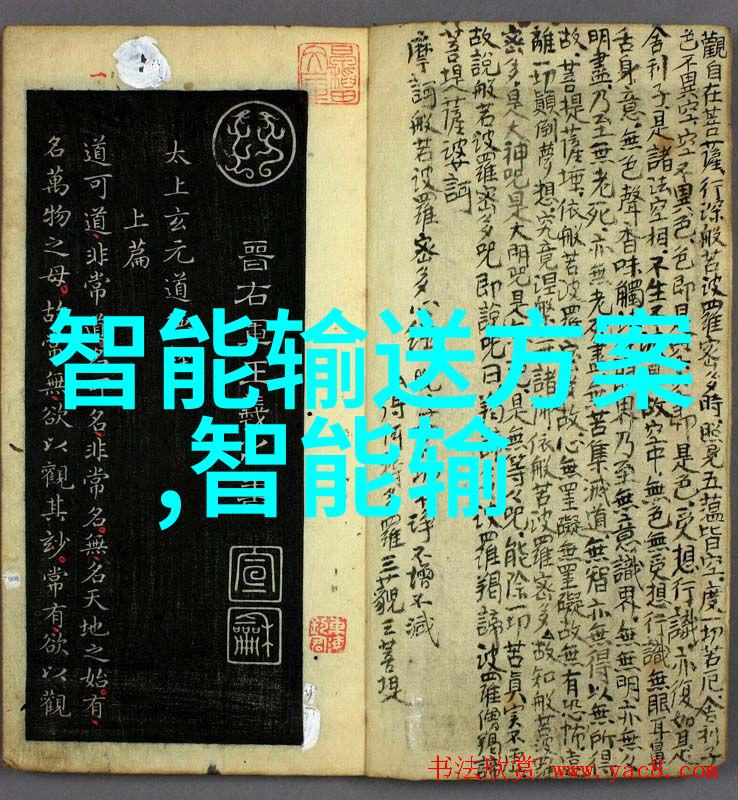 智能输送方案
,智能输
觀自在菩薩,行深般若波羅密多時照見五蘊皆空,度一切苦厄舍利子
色不異空,空不異色,色即是空即是色,受想行識亦復如是
舍利子是諸法空相,不生故空中無色無受想行識無眼耳鼻
舌身意,無色聲香味觸無眼界乃至無意識界,無無明亦無
明盡,乃至無老死,亦無老死盡無苦集滅道,無智亦無得以無所得
故,菩提薩埵,依般若波羅密多故,心無罣礙無罣礙故無有恐怖遠
離一切顛倒夢想究竟涅槃諸佛依般若波羅密多,故知般若波
密多是大神咒是大明咒是是無等々咒,能除一切苦真實不
故說般若波羅密多咒即說咒曰波羅揭諦波羅僧揭諦
菩提薩婆訶
摩訶般若波羅密多心經
不增不減
得多羅三藐三菩提
晉右軍王羲
太上玄元道
上篇
道可道,非常名,非常名。無,名天地之始。有,
名萬物之母。故常無,欲以觀其妙。常有,欲以觀
宣
龢
书法欣赏 www.yac8.com